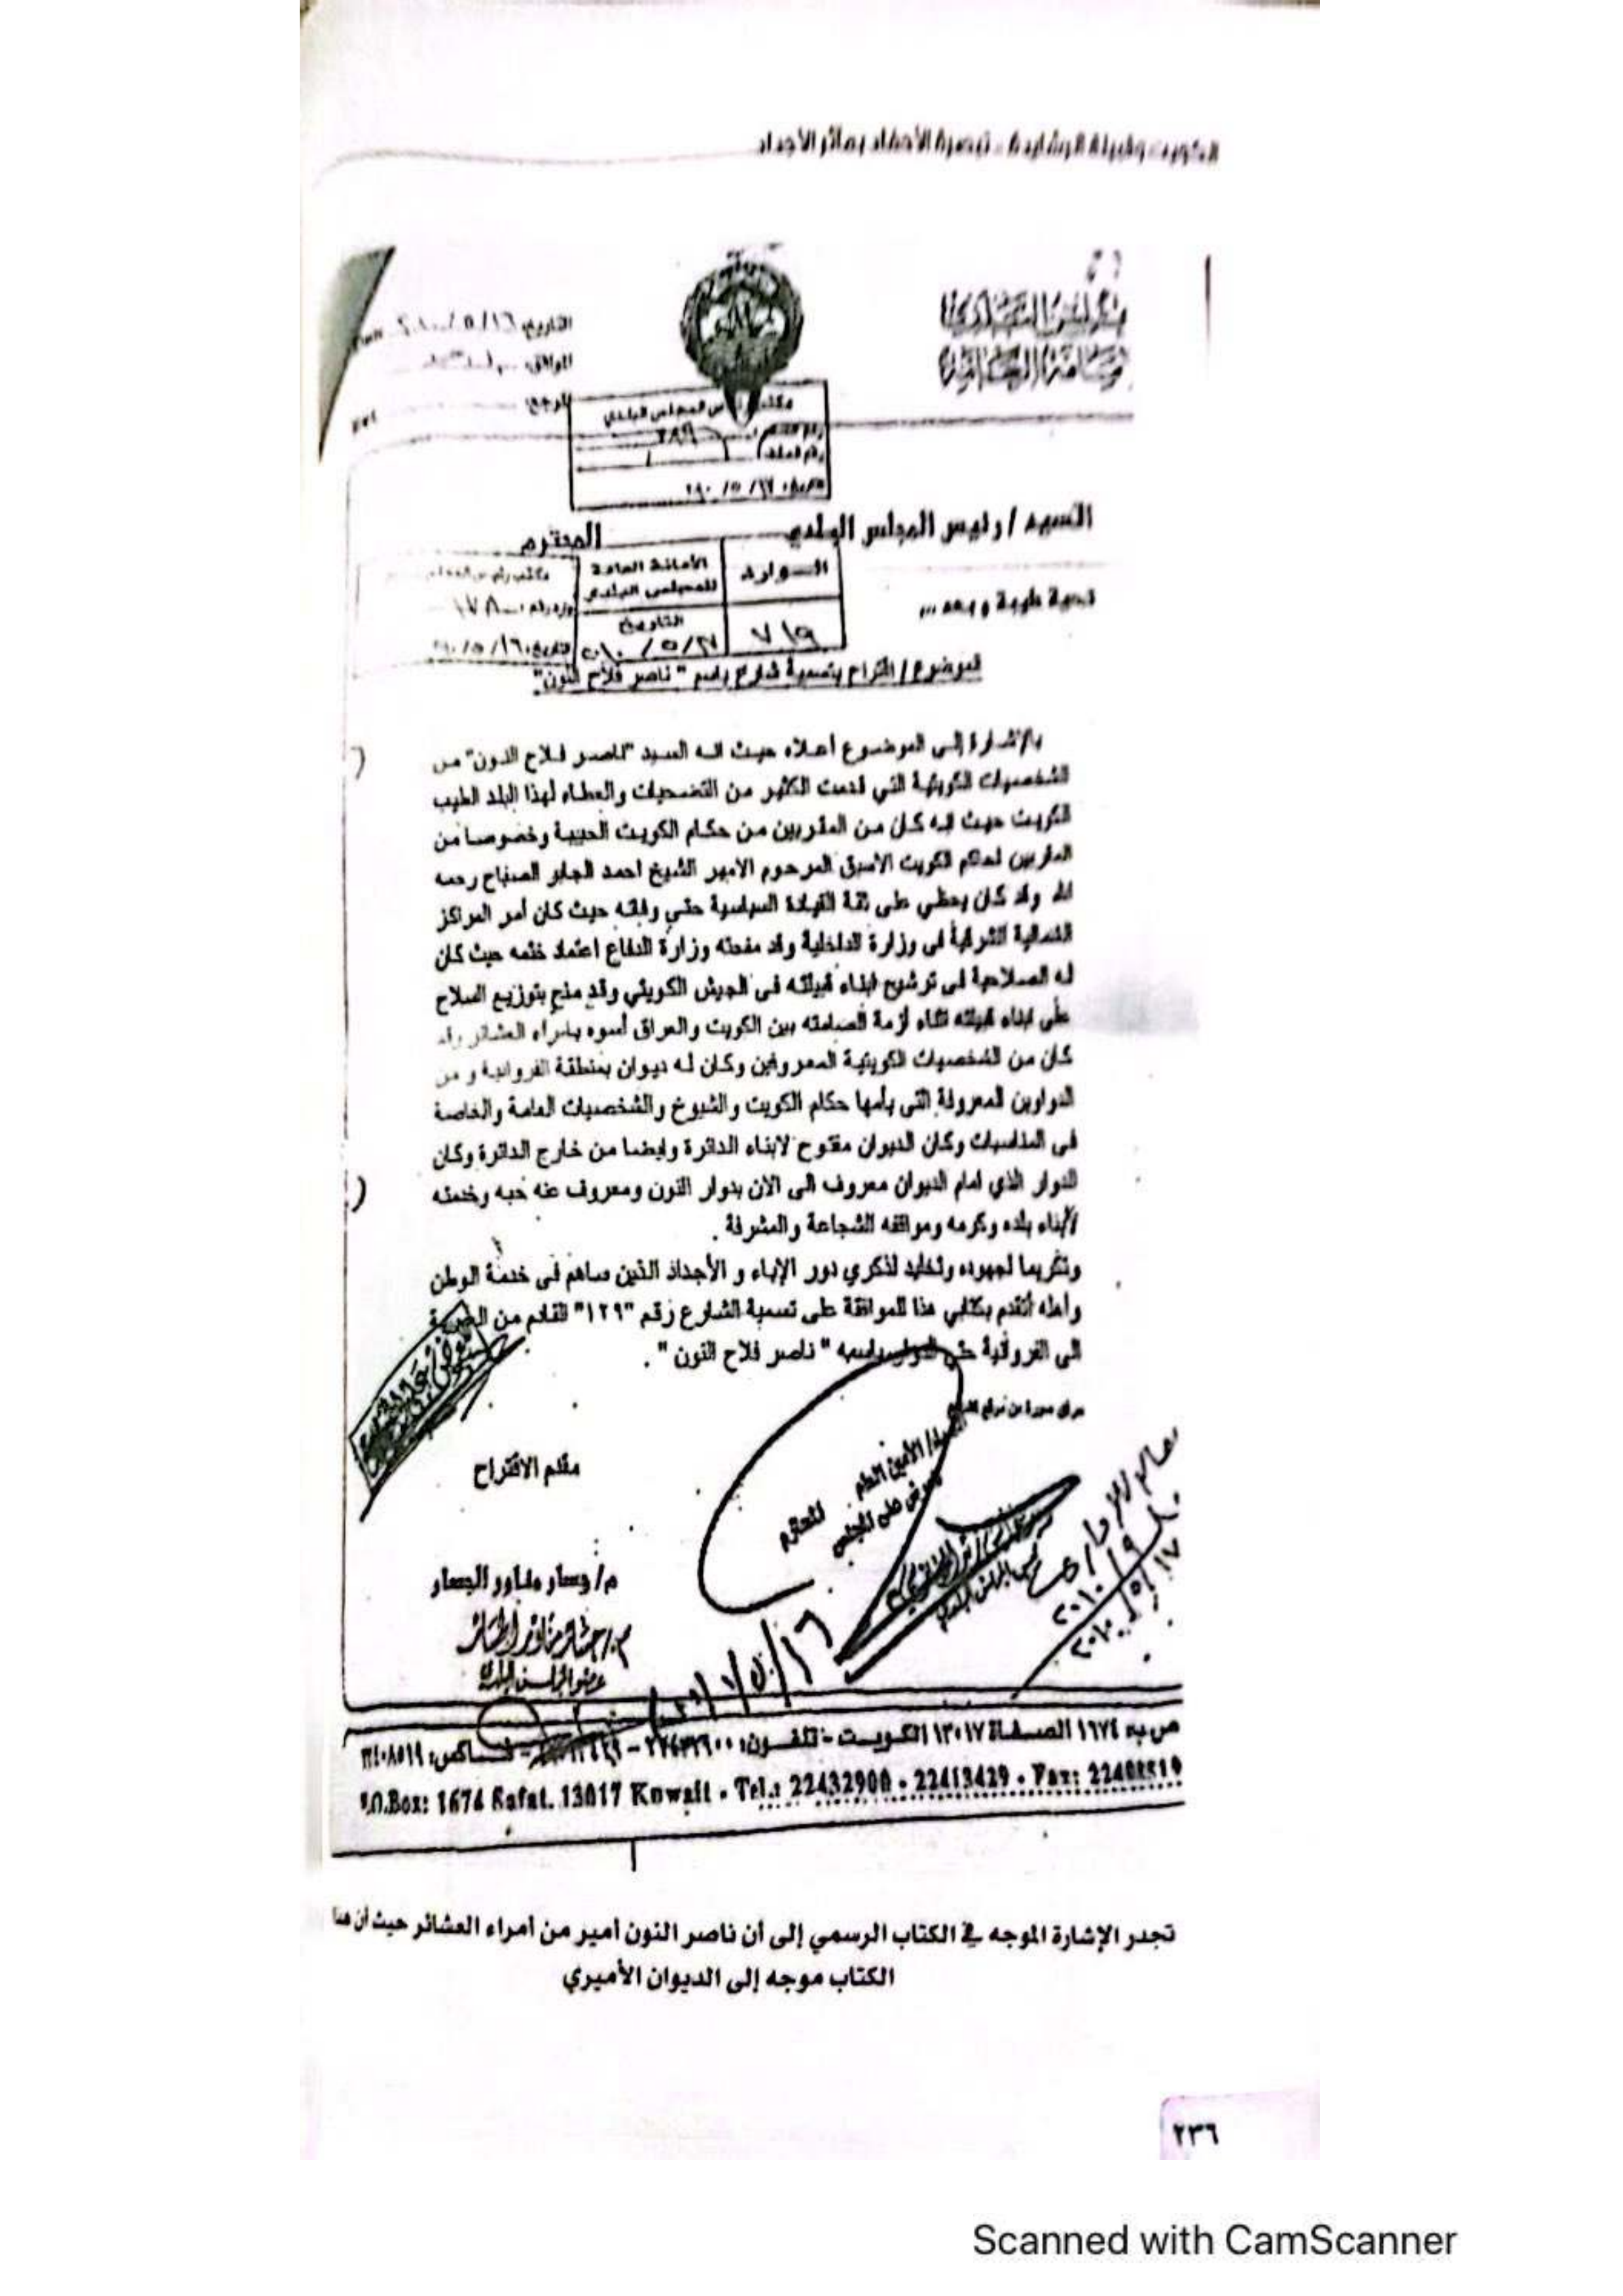 الكويت وقبيلة الرشايدة - تبصرة الأحفاد بمآثر الأجداد
التاريخ: ١٦/٥/
الموافق:
المرجع:
المجلس البلدي
رقم
رقم الملف
السيد / رئيس المجلس البلدي المحترم
الأمانة العامة
للمجلس البلدي
الوارد
التاريخ
٧١٩
تحية طيبة وبعد ...
الموضوع / اقتراح بتسمية شارع باسم " ناصر فلاح النون"
بالإشارة إلى الموضوع أعلاه حيث انه السيد "ناصر فلاح النون" من
الشخصيات الكويتية التي قدمت الكثير من التضحيات والعطاء لهذا البلد الطيب
الكويت حيث انه كان من المقربين من حكام الكويت الحبيبة وخصوصا من
المقربين لحاكم الكويت الاسبق المرحوم الامير الشيخ احمد الجابر الصباح رحمه
الله وقد كان يحظي على ثقة القيادة السياسية حتي وفاته حيث كان أمر المراكز
الشمالية الشرقية فى وزارة الداخلية وقد منحته وزارة الدفاع اعتماد ختمه حيث كان
له الصلاحية فى ترشيح ابناء قبيلته فى الجيش الكويتي وقد منح بتوزيع السلاح
على ابناء قبيلته اثناء أزمة الصامته بين الكويت والعراق أسوه بامراء العشائر وقد
كان من الشخصيات الكويتية المعروفين وكان له ديوان بمنطقة الفروانية و من
الدواوين المعروفة التى يأمها حكام الكويت والشيوخ والشخصيات العامة والخاصة
فى المناسبات وكان الديوان مفتوح لابناء الدائرة وايضا من خارج الدائرة وكان
الدوار الذي امام الديوان معروف الى الان بدوار النون ومعروف عنه حبه وخدمته
لأبناء بلده وكرمه ومواقفه الشجاعة والمشرفة .
وتكريما لجهوده وتخليد لذكري دور الإباء و الأجداد الذين ساهم فى خدمة الوطن
وأهله أتقدم بكتابي هذا للموافقة على تسمية الشارع رقم "١٢٩" القادم من
الى الفروانية حتى الدوار باسمه " ناصر فلاح النون " .
السيد/ الأمين العام
المحترم
للعرض على المجلس
مقدم الاقتراح
م/ جسار مناور الجسار
عضو المجلس البلدي
١٦/٥/
١٧/٥/٢٠١٠
ص.ب: ١٦٧٤ الصفاة ١٣٠١٧ الكويت - تلفون: ٢٢٤٣٢٩٠٠ - فاكس:
P.O.Box: 1674 Safat. 13017 Kuwait - Tel.: 22432900 - 22413429 - Fax: 22408519
تجدر الإشارة الموجه في الكتاب الرسمي إلى أن ناصر النون أمير من أمراء العشائر حيث أن هذا
الكتاب موجه إلى الديوان الأميري
٢٣٦
Scanned with CamScanner